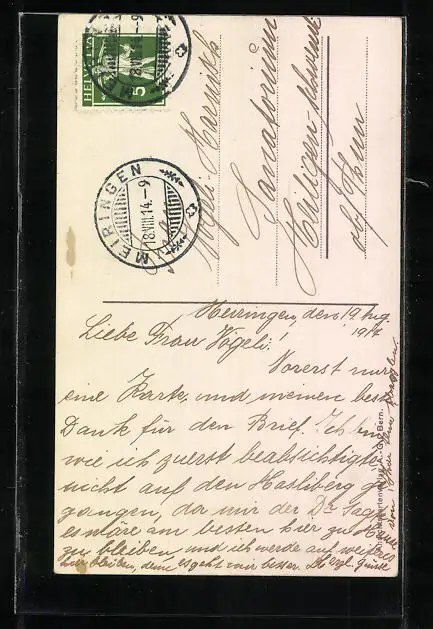 HELVETIA
5
MEIRINGEN
18.VIII.14.-9
Vögeli
Sanatorium
Heiligenschwendi
ob Thun
Meiringen, den 19. Aug.
1914
Liebe Frau Vögeli!
Vorerst nur
eine Karte und meinen best
Dank für den Brief. Ich bin
wie ich zuerst beabsichtigte
nicht auf den Hasliberg ge
gangen, da mir der Dr. sagte
es wäre am besten hier zu Hause
zu bleiben, und ich werde auf weiteres
hier bleiben, denn es geht mir besser. Herzl. Grüsse
von
A.G. Bern.